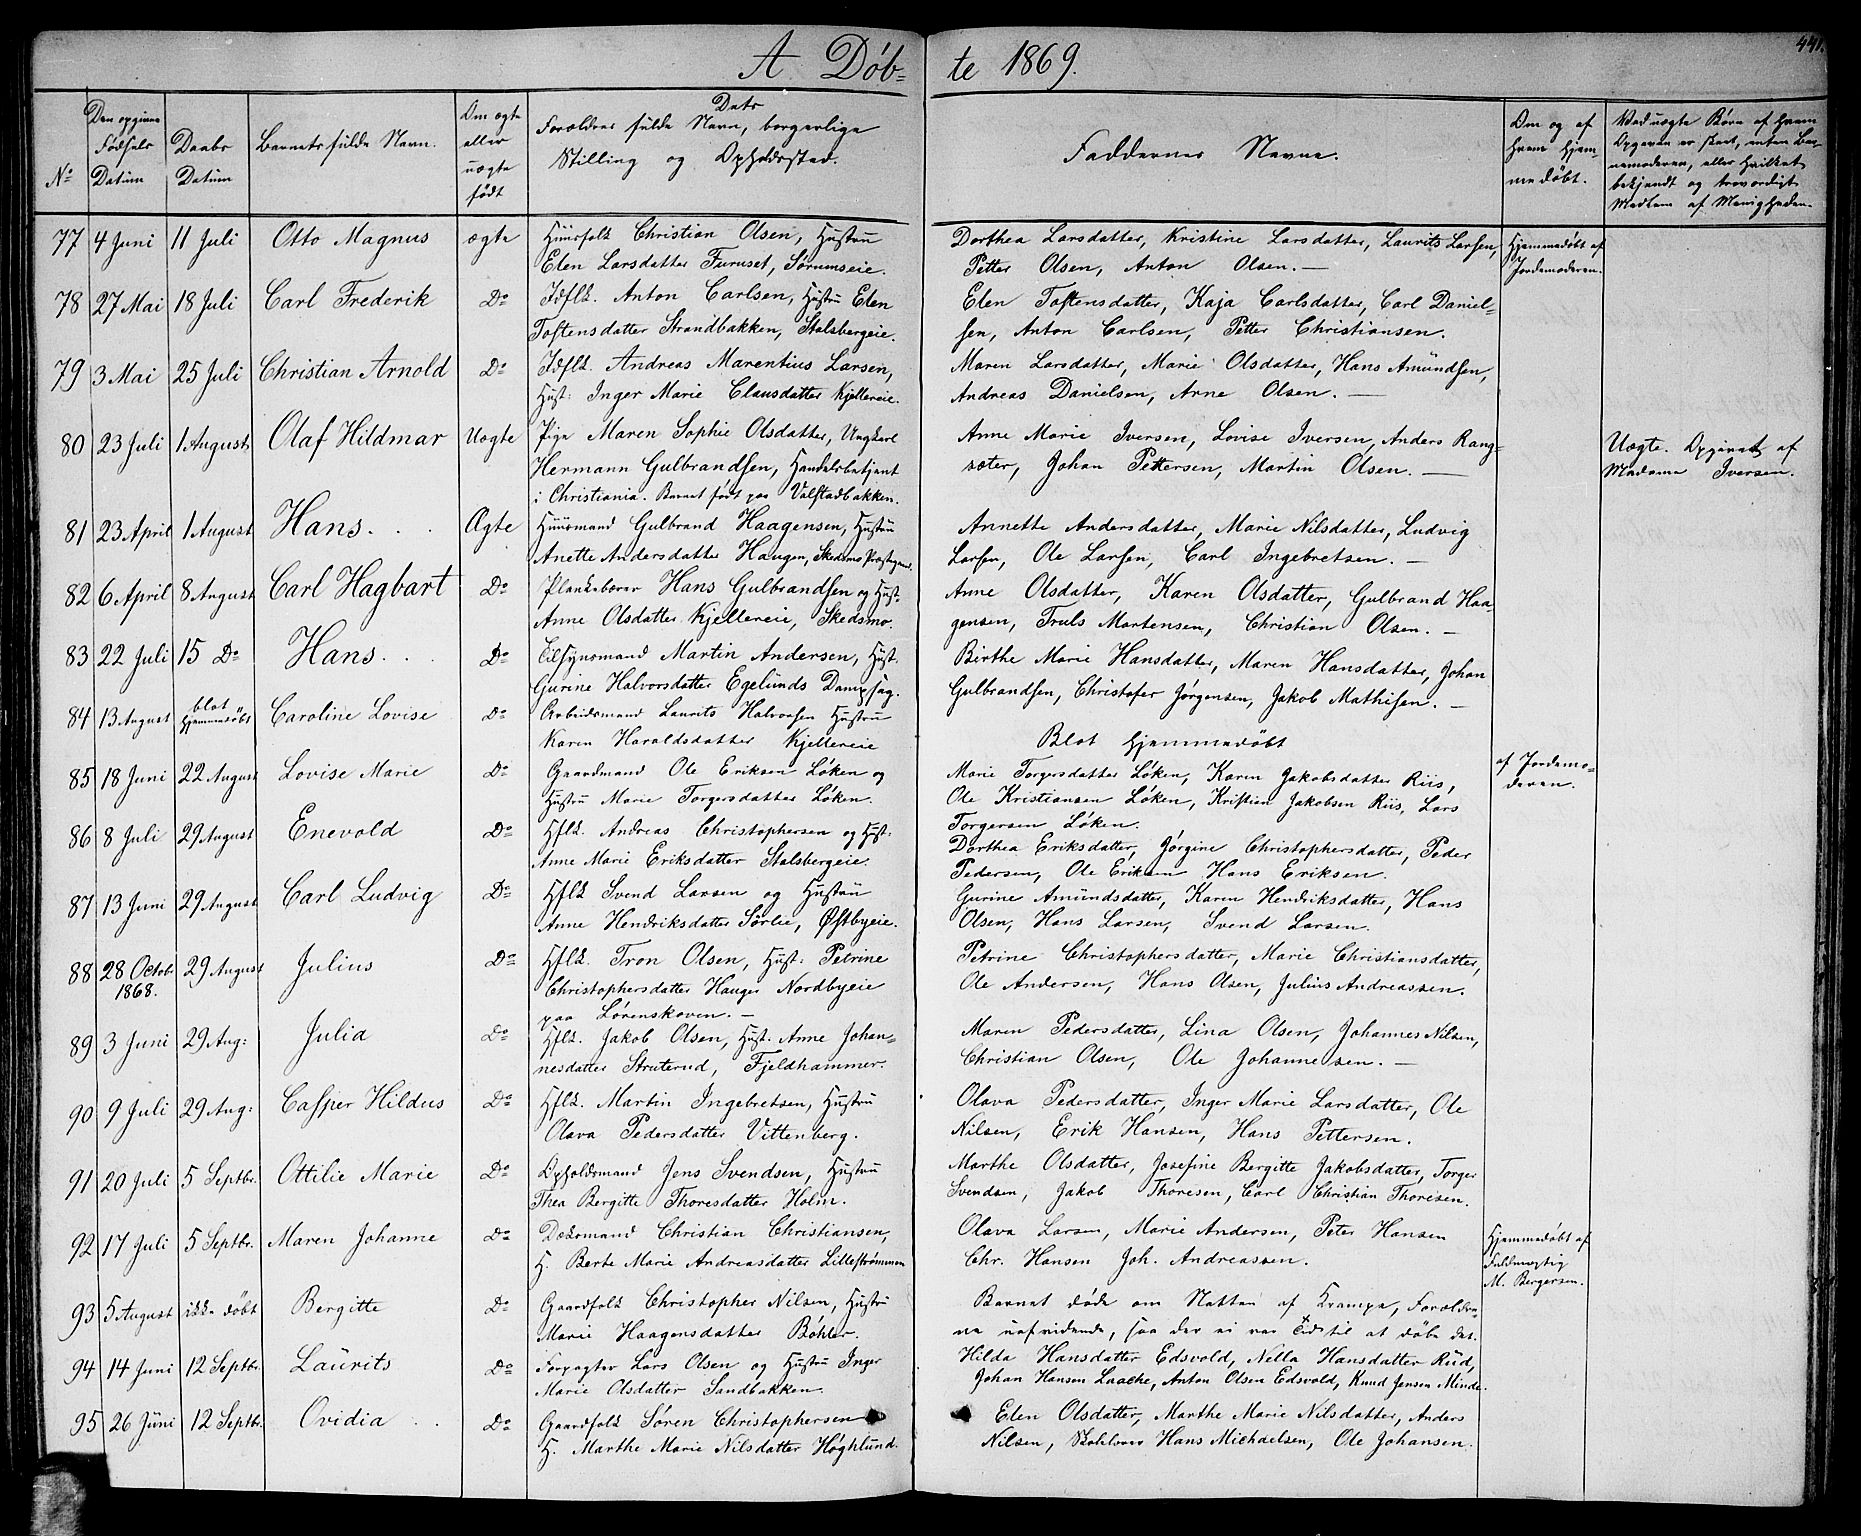 441.
A. Døb- te 1869.
No
Den opgivne Fødsels Datum
Daabs Datum
Barnets fulde Navn.
Om ægte eller uægte født
Dets Forældres fulde Navn, borgerlige Stilling og Opholdssted.
Faddernes Navne.
Om og af hvem hjemmedøbt.
Ved uægte Børn af hvem Opgaven er skeet, enten Barnemoderen, eller hvilket bekjendt og troværdigt Medlem af Menigheden.
77 4 Juni 11 Juli Otto Magnus ægte Huusfolk Christian Olsen, Hustru Dorthea Larsdatter, Kristine Larsdatter, Laurits Larsen, Hjemmedøbt af
Elen Larsdatter Furuset, Sørumseie. Petter Olsen, Anton Olsen.— Jordemoderen.
78 27 Mai 18 Juli Carl Frederik Do Idflk. Anton Carlsen, Hustru Elen Elen Toftensdatter, Kaja Carlsdatter, Carl Daniel-
Toftensdatter Strandbakken, Stalsbergeie. sen, Anton Carlsen, Petter Christiansen.
79 3 Mai 25 Juli Christian Arnold Do Idflk. Andreas Marentius Larsen, Maren Larsdatter, Marie Olsdatter, Hans Amundsen,
Hust: Inger Marie Clausdatter Kjellereie. Andreas Danielsen, Arne Olsen. —
80 23 Juli 1 August Olaf Hildmar Uægte Pige Maren Sophie Olsdatter, Ungkarl Anne Marie Iversen, Lovise Iversen, Anders Rang- Uægte. Opgivet af
Hermann Gulbrandsen, Handelsbetjent sæter, Johan Pettersen, Martin Olsen. — Madame Iversen.
i Christiania. Barnet født paa Valstadbakken.
81 23 April 1 August Hans. Ægte Huusmand Gulbrand Haagensen, Hustru Annette Andersdatter, Marie Nilsdatter, Ludvig
Anette Andersdatter Haugen, Skedsmo Præstegaard. Larsen, Ole Larsen, Carl Ingebretsen. —
82 6 April 8 August Carl Hagbart Do Plankebærer Hans Gulbrandsen og Hust. Anne Olsdatter, Karen Olsdatter, Gulbrand Haa
Anne Olsdatter Kjellereie, Skedsmo. gensen, Truls Mortensen, Christian Olsen. —
83 22 Juli 15 Do Hans. Do Tilsynsmand Martin Andersen, Hust. Birthe Marie Hansdatter, Maren Hansdatter, Johan
Gurine Halvorsdatter Egelunds Dampsag. Gulbrandsen, Christofer Jørgensen, Jakob Mathisen. —
84 13 August blot hjemmedøbt Caroline Lovise Do Arbeidsmand Laurits Halvorsen Hustru
Karen Haraldsdatter Kjellereie Blot hjemmedøbt
85 18 Juni 22 August Lovise Marie Do Gaardmand Ole Eriksen Løken og Marie Torgersdatter Løken, Karen Jakobsdatter Riis, af Jordemo-
Hustru Marie Torgersdatter Løken. Ole Kristiansen Løken, Kristian Jakobsen Riis, Lars deren.
Torgersen Løken.
86 8 Juli 29 August Enevold Do Hflk. Andreas Christophersen og Hust: Dorthea Eriksdatter, Jørgine Christophersdatter, Peder
Anne Marie Eriksdatter Stalsbergeie. Pedersen, Ole Eriksen Hans Eriksen.
87 13 Juni 29 August Carl Ludvig Do Hflk Svend Larsen og Hustru Gurine Amundsdatter, Karen Hendriksdatter, Hans
Anne Hendriksdatter Sørlie, Østbyeie. Olsen, Hans Larsen, Svend Larsen.
88 28 Octob. 1868. 29 August Julius Do Hflk. Tron Olsen, Hust: Petrine Petrine Christophersdatter, Marie Christiansdatter,
Christophersdatter Hauger Nordbyeie Ole Andersen, Hans Olsen, Julius Andreassen.
paa Lørenskoven. —
89 3 Juni 29 Aug: Julia Do Hflk. Jakob Olsen, Hust. Anne Johan- Maren Pedersdatter, Lina Olsen, Johannes Nilsen,
nesdatter Struterud, Fjeldhammer. Christian Olsen, Ole Johannessen. —
90 9 Juli 29 Aug: Casper Hildus Do Hflk. Martin Ingebretsen, Hustru Olava Pedersdatter, Inger Marie Larsdatter, Ole
Olava Pedersdatter Vittenberg. Nilsen, Erik Hansen, Hans Pettersen.
91 20 Juli 5 Septbr. Ottilie Marie Do Opholdsmand Jens Svendsen, Hustru Marthe Olsdatter, Josefine Bergitte Jakobsdatter, Torger
Thea Bergitte Thoresdatter Holm. Svendsen, Jakob Thoresen, Carl Christian Thoresen.
92 17 Juli 5 Septbr. Maren Johanne Do Christian Christiansen, Olava Larsen, Marie Andersen, Peter Hansen Hjemmedøbt af
H. Berte Marie Andreasdatter Lillestrømmen Chr. Hansen Joh. Andreassen. Fuldmægtig
M. Bergersen.
93 5 August ikke døbt Bergitte Do Gaardfolk Christopher Nilsen, Hustru Barnet døde om Natten af Krampe, Foræld-
Marie Haagensdatter Bøhler. rene uafvidende, saa der ei var Tid til at døbe det.
94 14 Juni 12 Septbr. Laurits Do Forpagter Lars Olsen og Hustru Inger Hilda Hansdatter Edsvold, Nella Hansdatter Rud,
Marie Olsdatter Sandbakken. Johan Hansen Laache, Anton Olsen Edsvold, Knud Jensen Minde.
95 26 Juni 12 Septbr. Ovidia Do Gaardfolk Søren Christophersen Elen Olsdatter, Marthe Marie Nilsdatter, Anders
H. Marthe Marie Nilsdatter Høghlund. Nilsen, Hans Michaelsen, Ole Johansen.